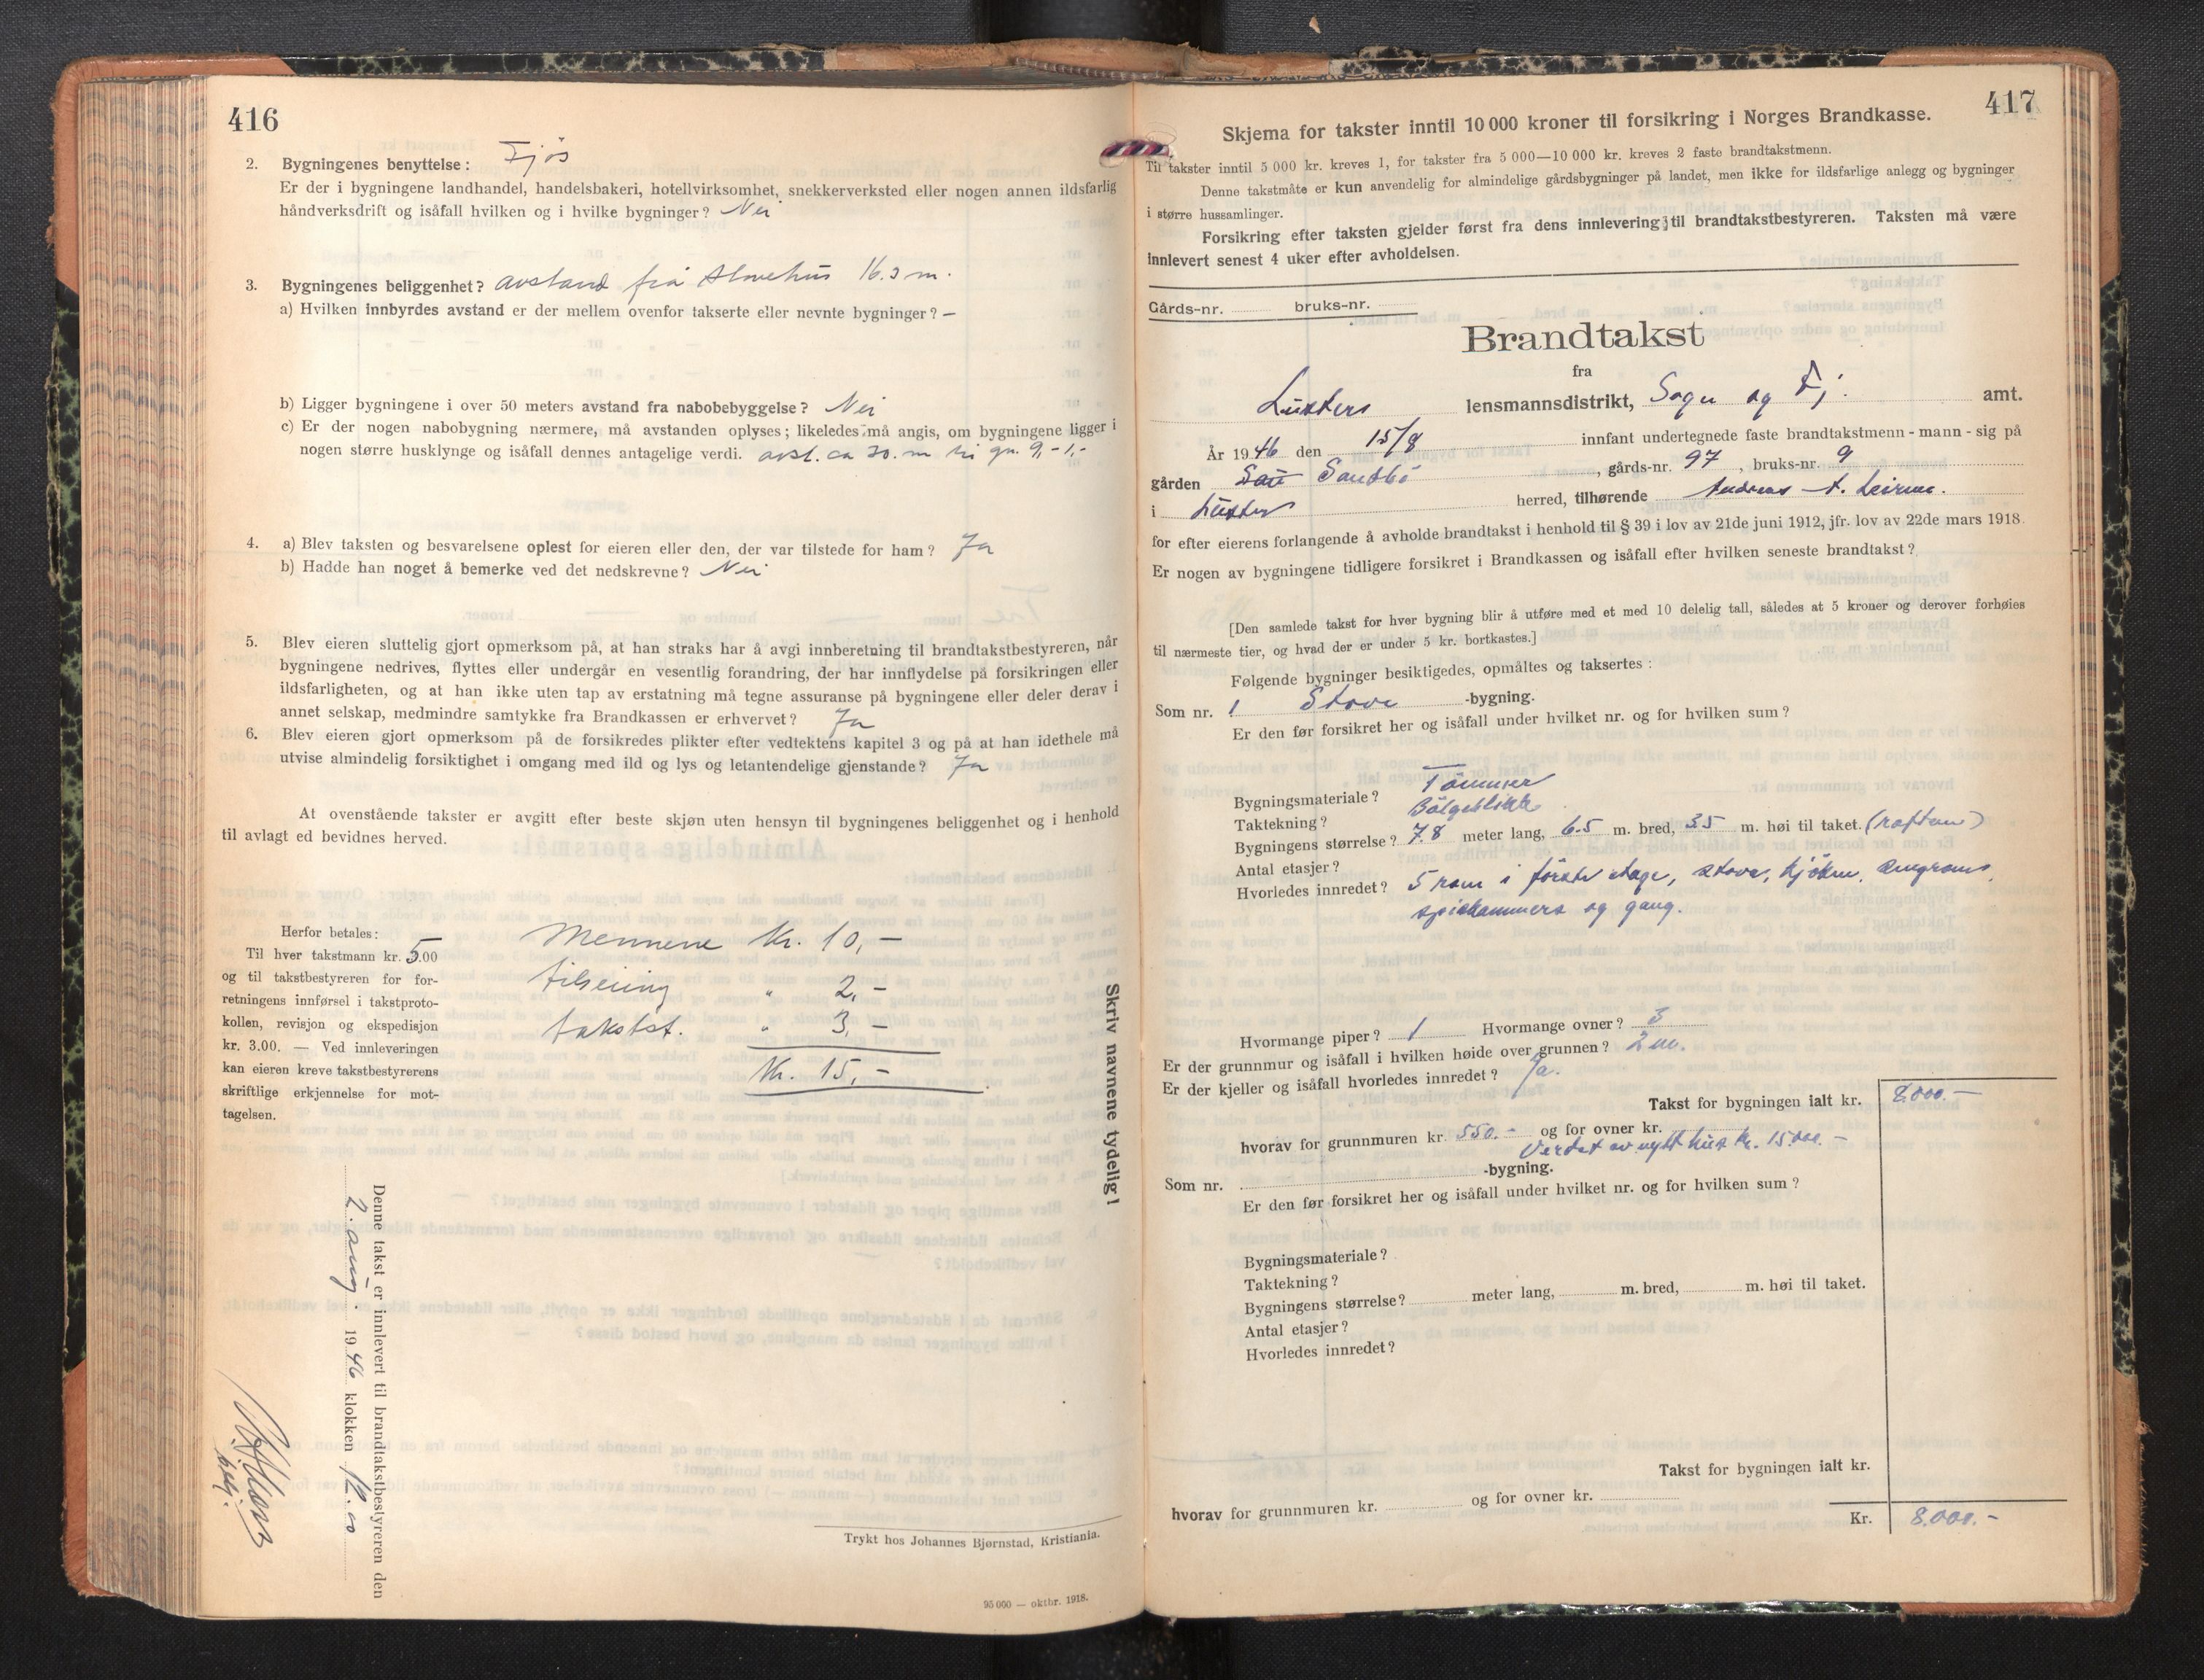 416
2. Bygningenes benyttelse: Fjøs
Er der i bygningene landhandel, handelsbakeri, hotellvirksomhet, snekkerverksted eller nogen annen ildsfarlig
håndverksdrift og isåfall hvilken og i hvilke bygninger? Nei
3. Bygningenes beliggenhet? avstand frå 16.3 m.
a) Hvilken innbyrdes avstand er der mellem ovenfor takserte eller nevnte bygninger? —
b) Ligger bygningene i over 50 meters avstand fra nabobebyggelse? Nei
c) Er der nogen nabobygning nærmere, må avstanden oplyses; likeledes må angis, om bygningene ligger i
nogen større husklynge og isåfall dennes antagelige verdi. avst. ca 30. m til gn. 9,-1,-
4. a) Blev taksten og besvarelsene oplest for eieren eller den, der var tilstede for ham? Ja
b) Hadde han noget å bemerke ved det nedskrevne? Nei
5. Blev eieren sluttelig gjort opmerksom på, at han straks har å avgi innberetning til brandtakstbestyreren, når
bygningene nedrives, flyttes eller undergår en vesentlig forandring, der har innflydelse på forsikringen eller
ildsfarligheten, og at han ikke uten tap av erstatning må tegne assuranse på bygningene eller deler derav i
annet selskap, medmindre samtykke fra Brandkassen er erhvervet? Ja
6. Blev eieren gjort opmerksom på de forsikredes plikter efter vedtektens kapitel 3 og på at han idethele må
utvise almindelig forsiktighet i omgang med ild og lys og letantendelige gjenstande? Ja
At ovenstående takster er avgitt efter beste skjøn uten hensyn til bygningenes beliggenhet og i henhold
til avlagt ed bevidnes herved.
Herfor betales:
Til hver takstmann kr. 5.00
og til takstbestyreren for for-
retningens innførsel i takstproto-
kollen, revisjon og ekspedisjon
kr. 3.00. — Ved innleveringen
kan eieren kreve takstbestyrerens
skriftlige erkjennelse for mot-
tagelsen.
Mennene Kr. 10,—
tilseiing " 2,—
takstst. " 3,—
Kr. 15,—
Skriv navnene tydelig!
Denne takst er innlevert til brandtakstbestyreren den
2. aug. 1946 klokken 12.00
Trykt hos Johannes Bjørnstad, Kristiania.
95 000 — oktbr. 1918.
417
Skjema for takster inntil 10 000 kroner til forsikring i Norges Brandkasse.
Til takster inntil 5 000 kr. kreves 1, for takster fra 5 000—10 000 kr. kreves 2 faste brandtakstmenn.
Denne takstmåte er kun anvendelig for almindelige gårdsbygninger på landet, men ikke for ildsfarlige anlegg og bygninger
i større hussamlinger.
Forsikring efter taksten gjelder først fra dens innlevering til brandtakstbestyreren. Taksten må være
innlevert senest 4 uker efter avholdelsen.
Gårds-nr. bruks-nr.
Brandtakst
fra
Lusters lensmannsdistrikt, Sogn og Fj. amt.
År 1946 den 15/8 innfant undertegnede faste brandtakstmenn - mann - sig på
gården Sandbö, gårds-nr. 97, bruks-nr. 9
i Luster herred, tilhørende Andreas A. Leirmo.
for efter eierens forlangende å avholde brandtakst i henhold til § 39 i lov av 21de juni 1912, jfr. lov av 22de mars 1918.
Er nogen av bygningene tidligere forsikret i Brandkassen og isåfall efter hvilken seneste brandtakst?
[Den samlede takst for hver bygning blir å utføre med et med 10 delelig tall, således at 5 kroner og derover forhøies
til nærmeste tier, og hvad der er under 5 kr. bortkastes.]
Følgende bygninger besiktigedes, opmåltes og taksertes:
Som nr. 1 Stove -bygning.
Er den før forsikret her og isåfall under hvilket nr. og for hvilken sum?
Bygningsmateriale? Tömmer
Taktekning? Bölgeblikk
Bygningens størrelse? 7.8 meter lang, 6.5 m. bred, 3.5 m. høi til taket. (raftene)
Antal etasjer?
Hvorledes innredet? 5 rom i förste etage, stove, kjöken, sengroms,
spiskammers og gang.
Hvormange piper? 1 Hvormange ovner? 3
Er der grunnmur og isåfall i hvilken høide over grunnen? 2 m.
Er der kjeller og isåfall hvorledes innredet? Ja.
Takst for bygningen ialt kr. 8.000.—
hvorav for grunnmuren kr. 550.— og for ovner kr.
Verdet av nytt hus kr. 15000.—
Som nr. -bygning.
Er den før forsikret her og isåfall under hvilket nr. og for hvilken sum?
Bygningsmateriale?
Taktekning?
Bygningens størrelse? meter lang, m. bred, m. høi til taket.
Antal etasjer?
Hvorledes innredet?
Takst for bygningen ialt kr.
hvorav for grunnmuren kr. og for ovner kr.
Kr. 8.000.—